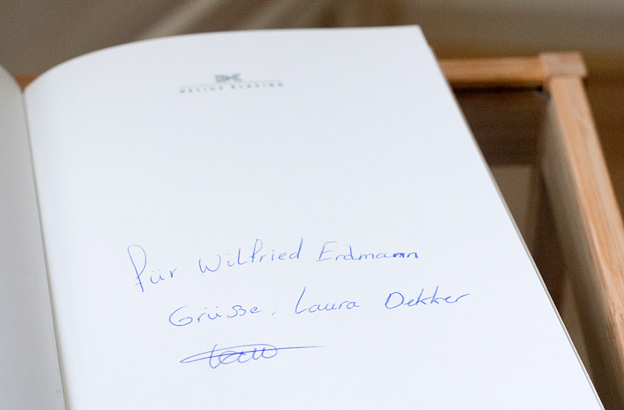 DELIUS KLASING
für Wilfried Erdmann
Grüsse, Laura Dekker